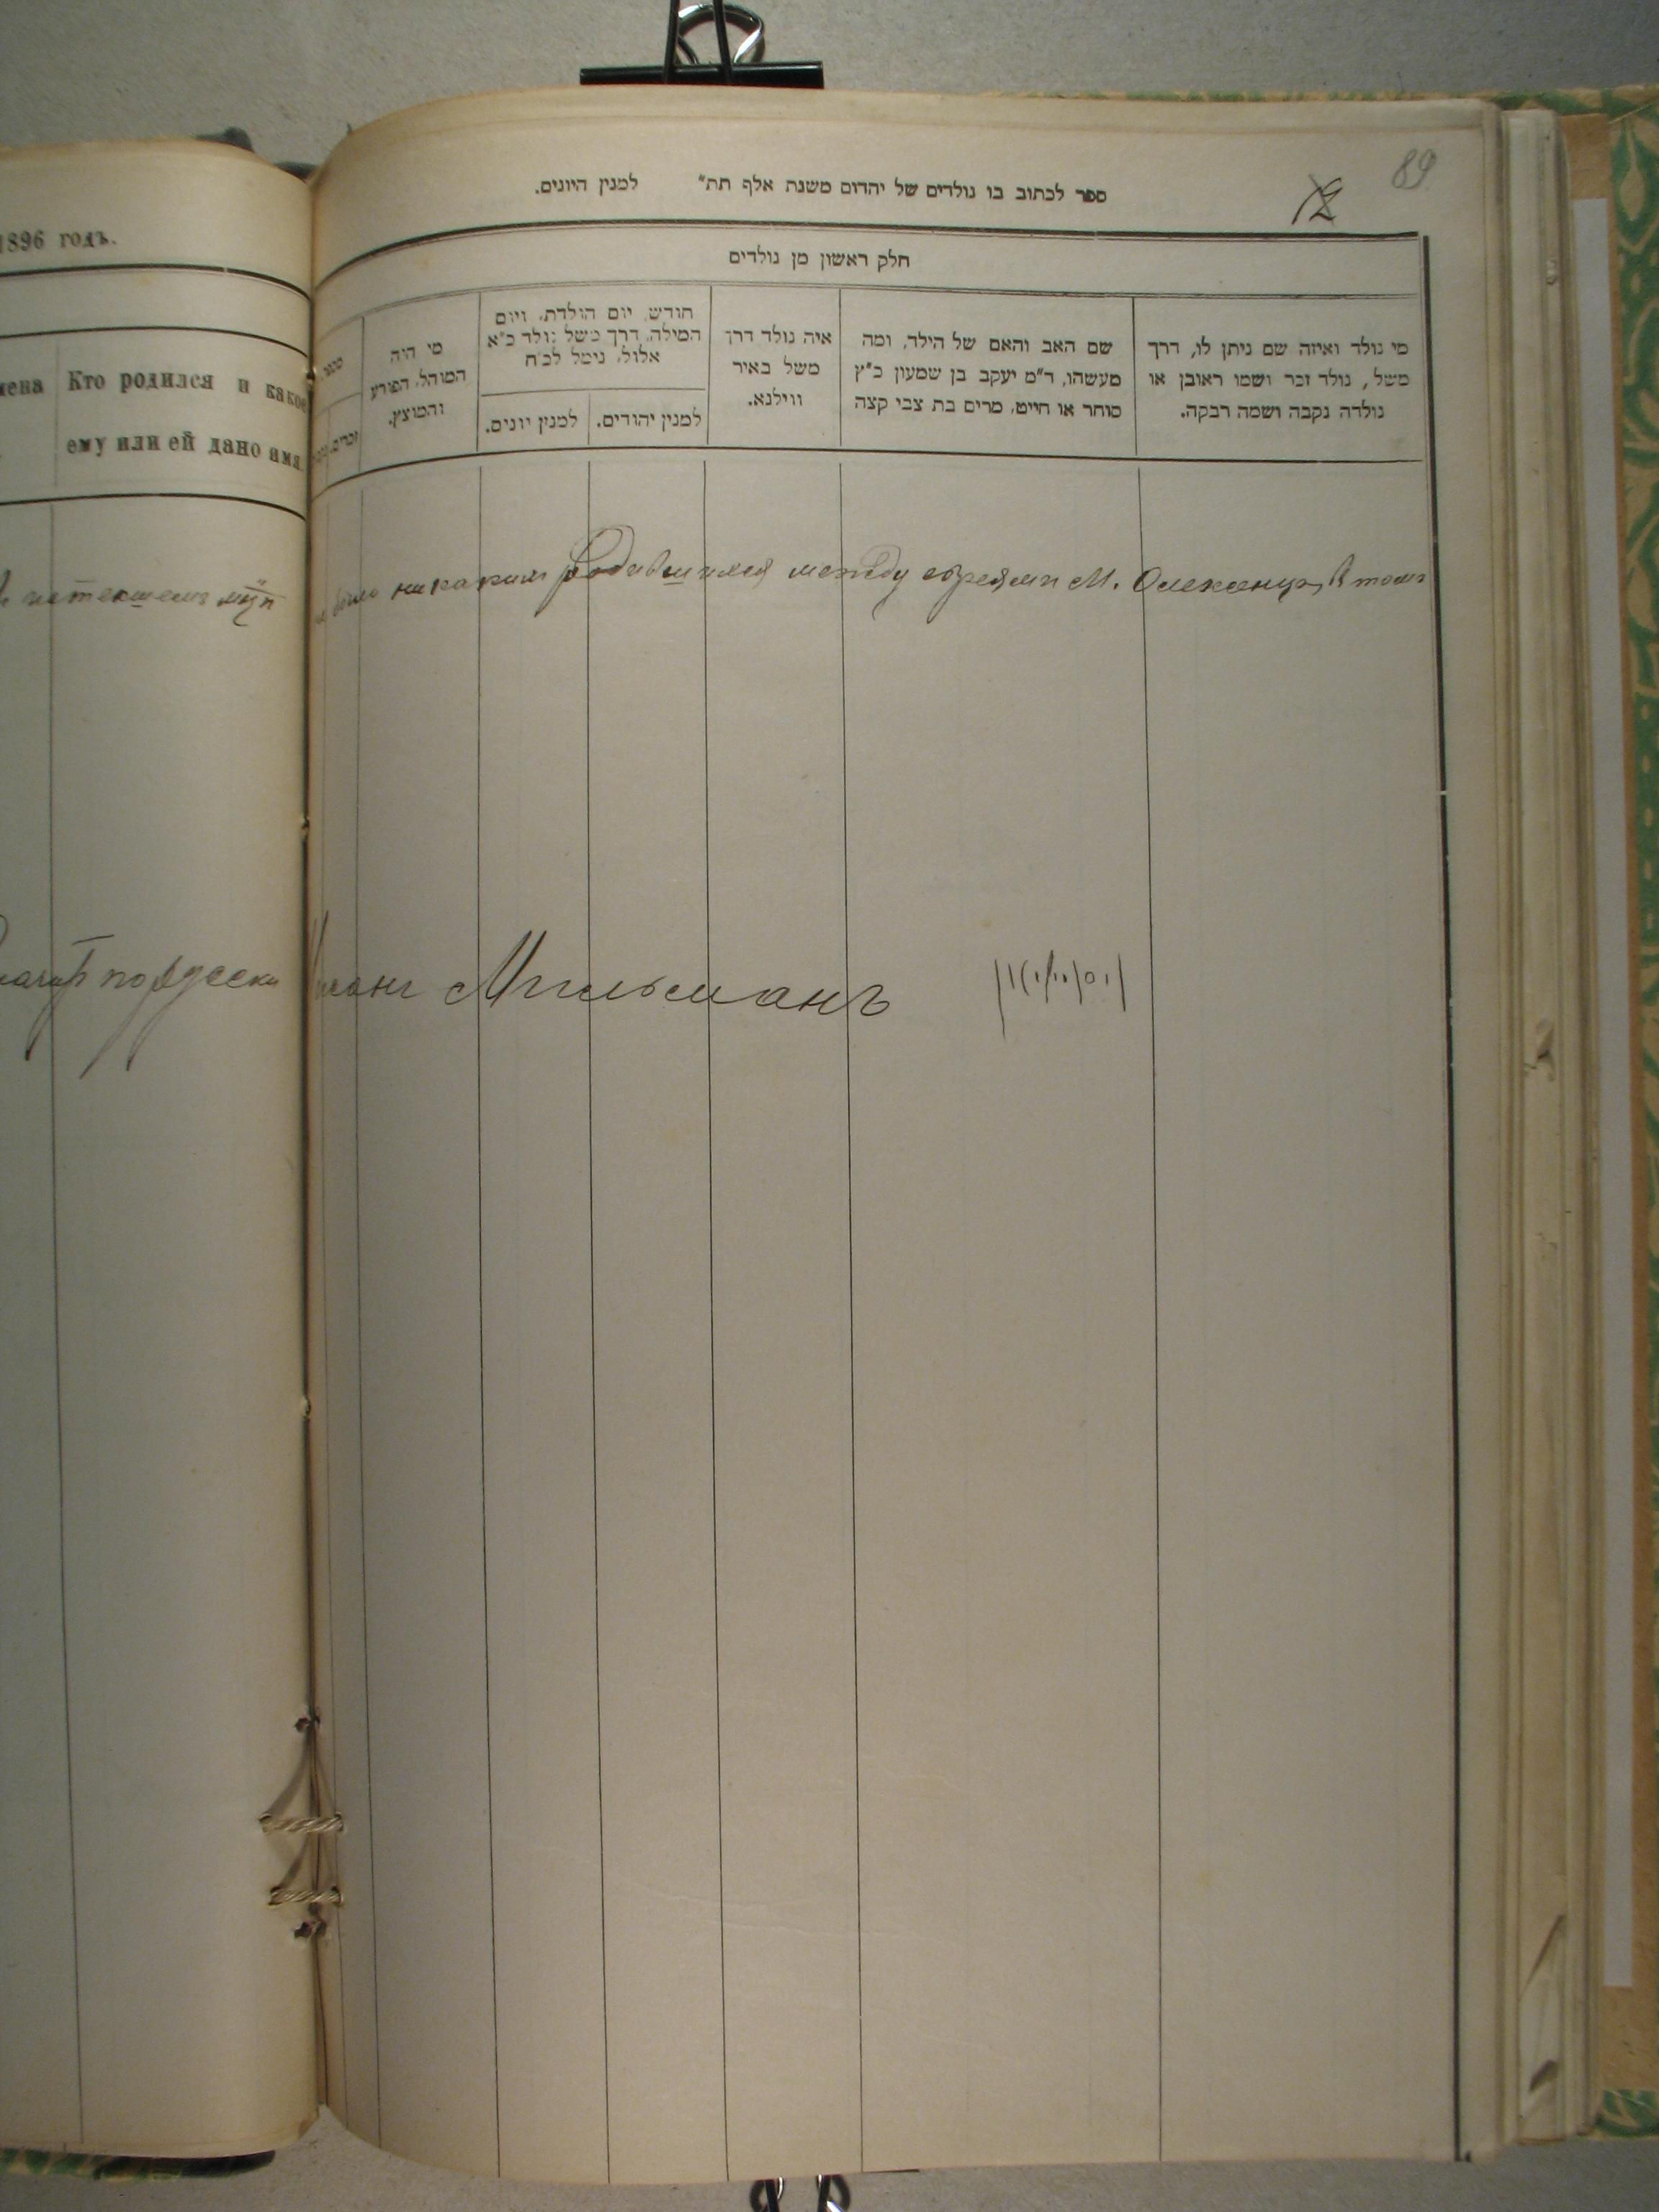 89
ספר לכתוב בו נולדים של יהדום משנת אלף תת״ למנין היונים.
1896 годъ.
חלק ראשון מן נולדים
מי נולד ואיזה שם ניתן לו, דרך
משל, נולד זכר ושמו ראובן או
נולדה נקבה ושמה רבקה.
שם האב והאם של הילד, ומה
מעשהו, ד״מ יעקב בן שמעון כ״ץ
סוחר או חייט, מרים בת צבי קצה
איה נולד דרך
משל באיר
ווילנא.
חודש, יום הולדת, ויום
המילה, דרך משל נולד כ״א
אלול, נימל לכ״ח
למנין יהודים.
למנין יונים.
מי היה
המוהל, הפורע
והמוצץ.
מספר
זכרים.
мена
Кто родился и какое
ему или ей дано имя
истекшемъ
было никакихъ родившихся между евреями М. въ томъ
Мильманъ